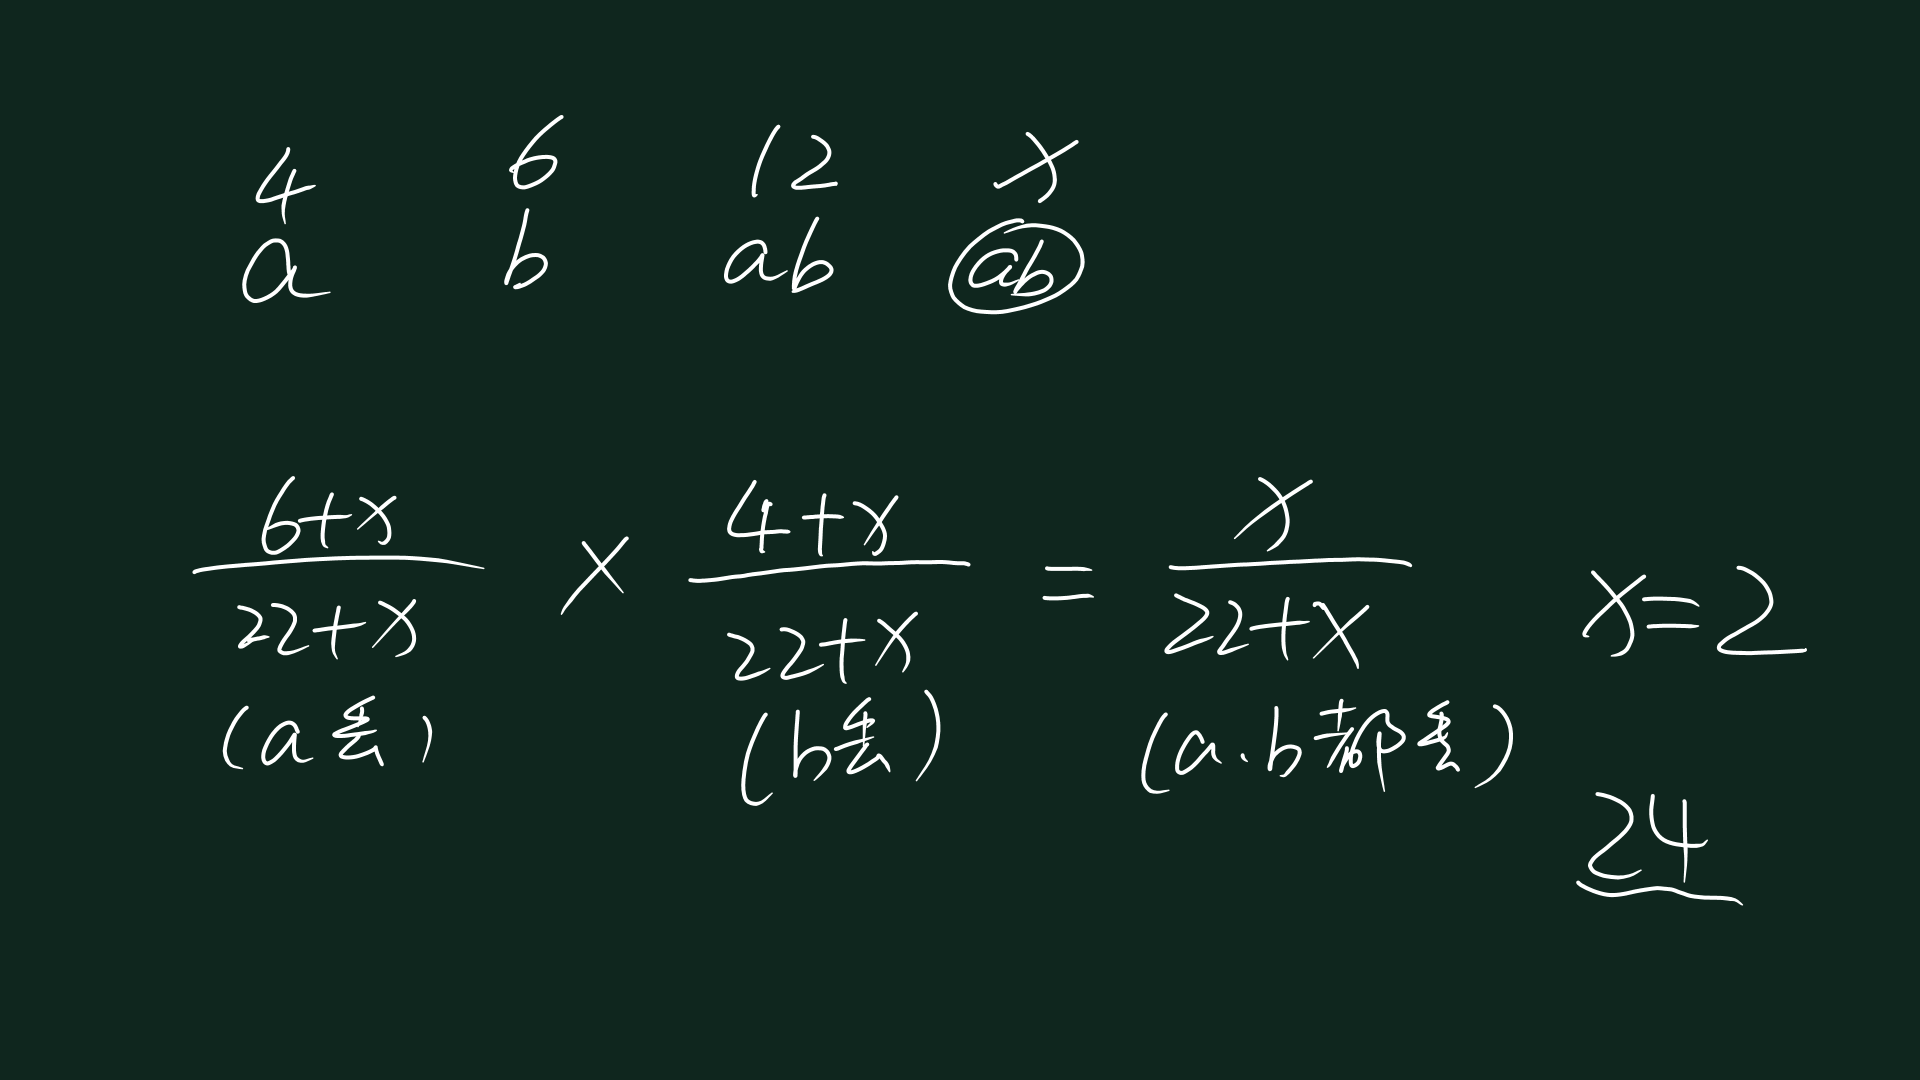 4 6 12 x
a b ab ab
6+x/22+x × 4+x/22+x = x/22+x x=2
(a丢) (b丢) (a.b都丢)
24